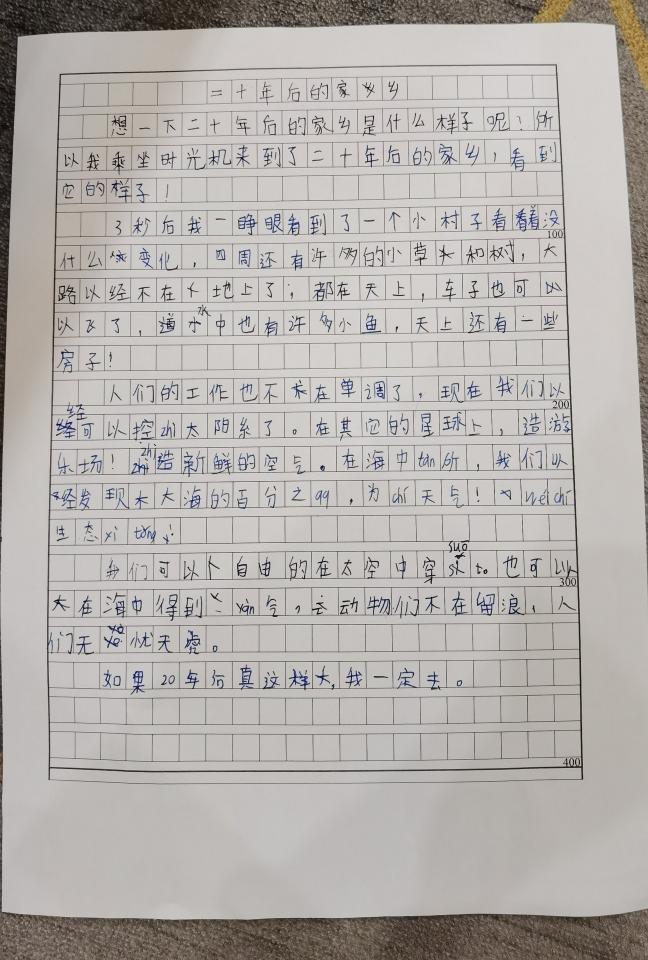 二十年后的家乡
想一下二十年后的家乡是什么样子呢？所
以我乘坐时光机来到了二十年后的家乡，看到
它的样子！
3秒后我一睁眼看到了一个小村子看着没
100
什么变化，四周还有许多的小草和树，大
路以经不在地上了；都在天上，车子也可以
以飞了，水中也有许多小鱼，天上还有一些
房子！
人们的工作也不在单调了，现在我们以
200
经可以控zhì太阳系了。在其它的星球上，造游
乐场！zhì造新鲜的空气。在海中tàn所，我们以
经发现大海的百分之99，为chí天气！wéi chí
生态xì tǒng！
我们可以自由的在太空中穿suō
也可以
300
在海中得到yǎng气，动物们不在留浪，人
们无忧天虑。
如果20年后真这样大，我一定去。
400